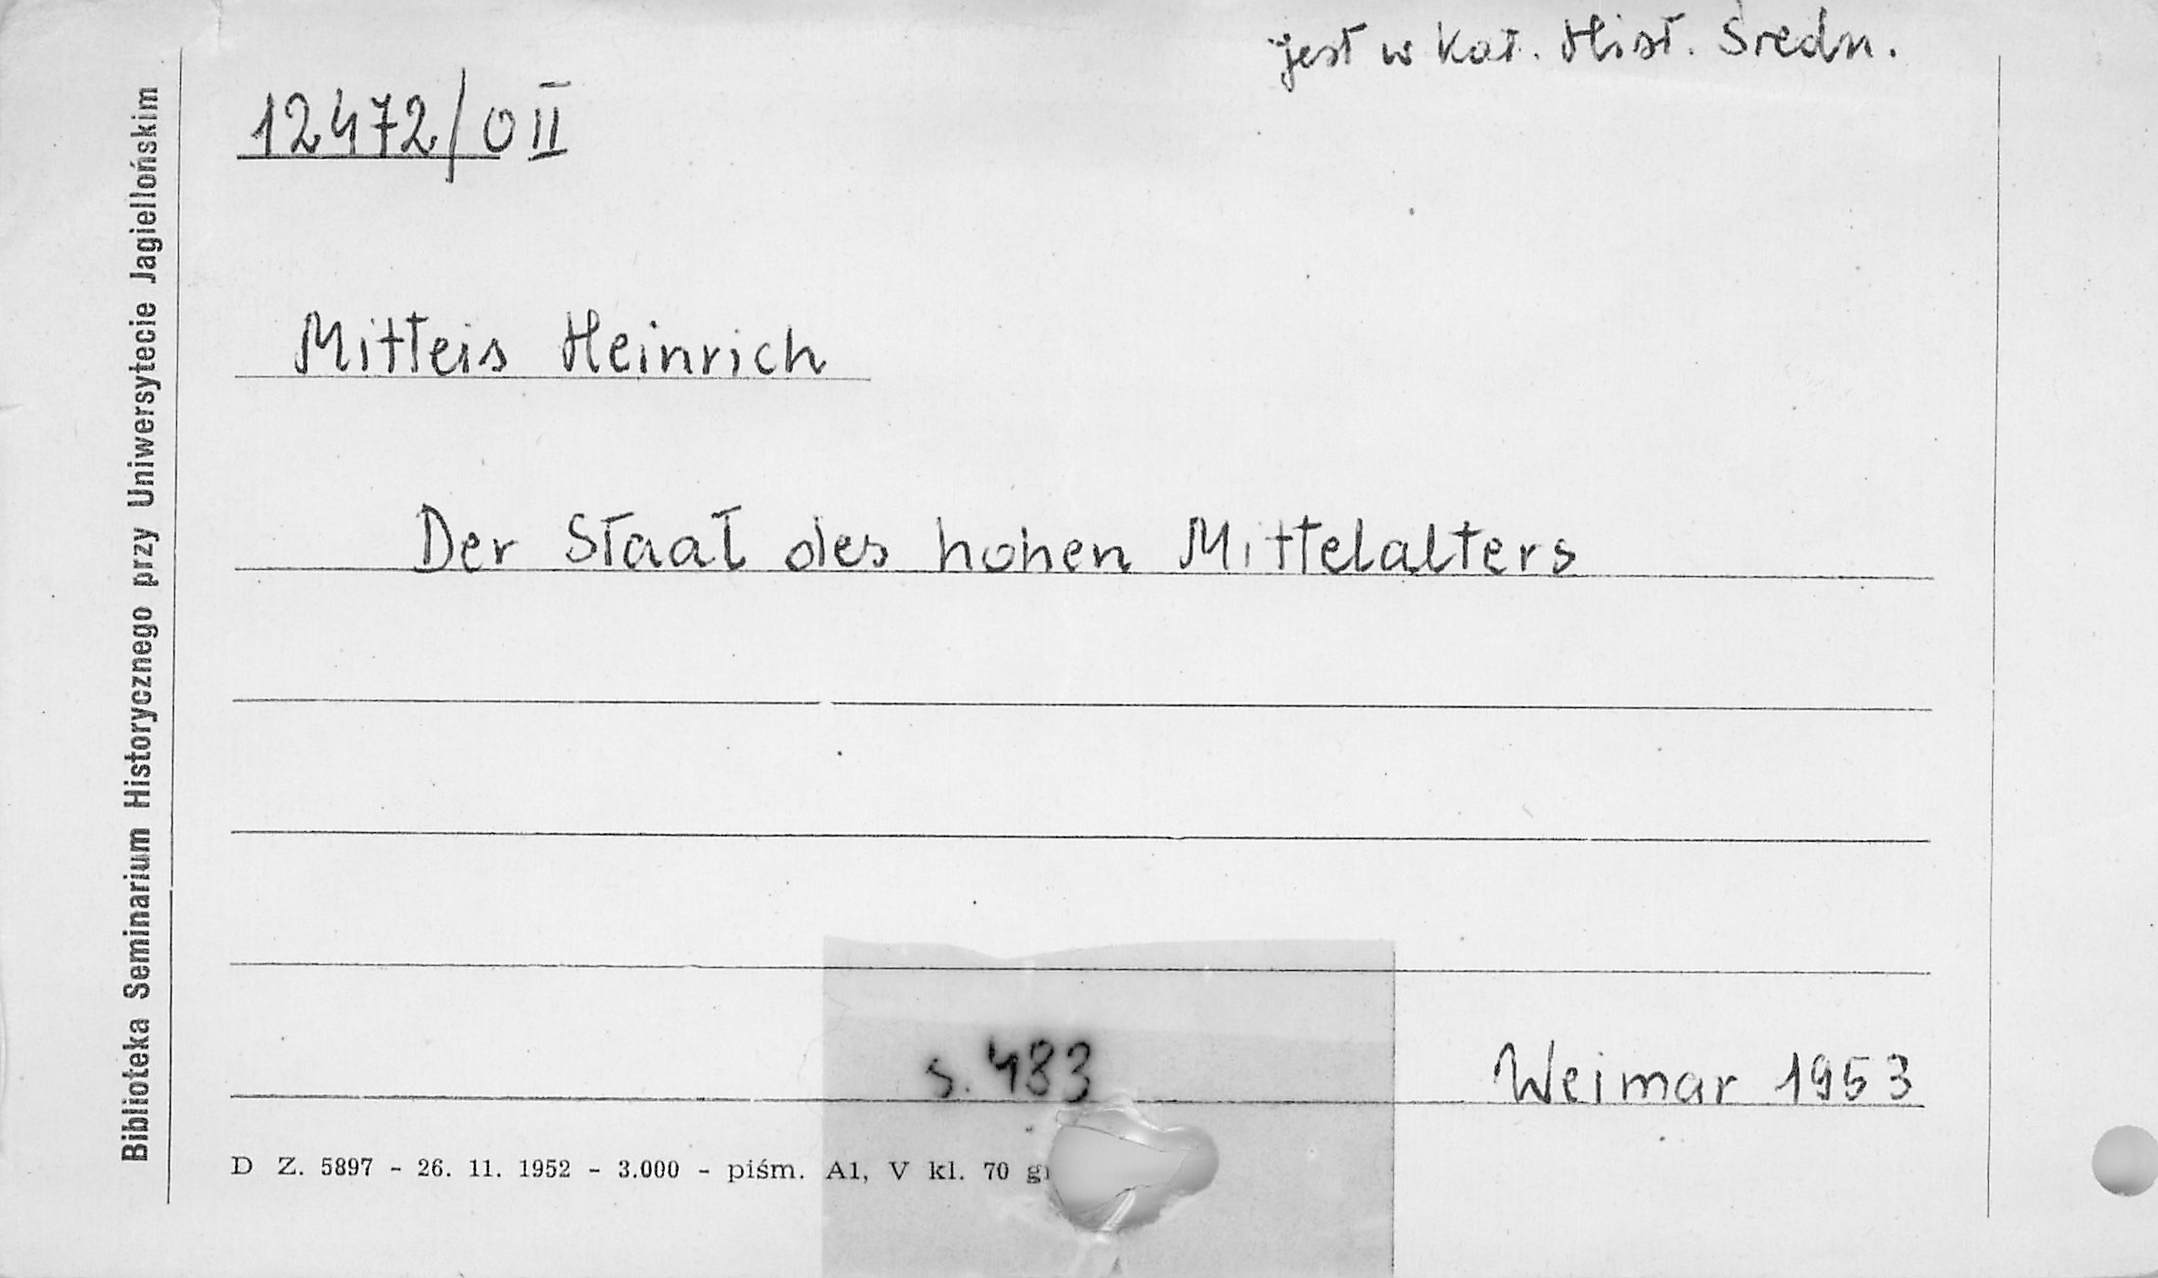 jest w kat. Hist. Średn.
12472/O II
Mitteis Heinrich
Der Staat des hohen Mittelalters
s. 483
Weimar 1953
D Z. 5897 - 26. 11. 1952 - 3.000 - piśm. A1, V kl. 70
Biblioteka Seminarium Historycznego przy Uniwersytecie Jagiellońskim